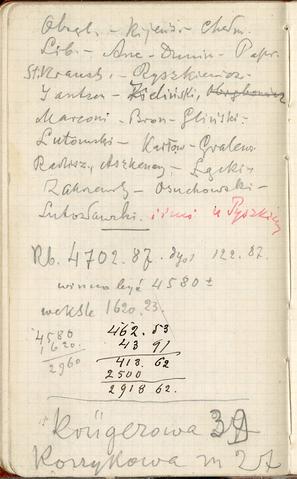 Obrąl. - Kijeńs. - Chełm.
Lib. - Anc - Dunin - Papr.
St. Krausch. - Ryszkiewicz -
Jantzen - Zieliński,
Marconi - Bron - Gliński -
Lutomski - Karłow - Gralew
Radisz., Aszkenazy - Łącki -
Zakrzewski - Osuchowski -
Lutosławski. i inni u Tyszkiew
Rb. 4702.87. dysp 122.87.
winno być 4580 ±
weksle 1620.23.
4580
1620.
2960
462.53
43 91
418.62
2500
2918 62.
Krügerowa 32
Korzykowa m 27